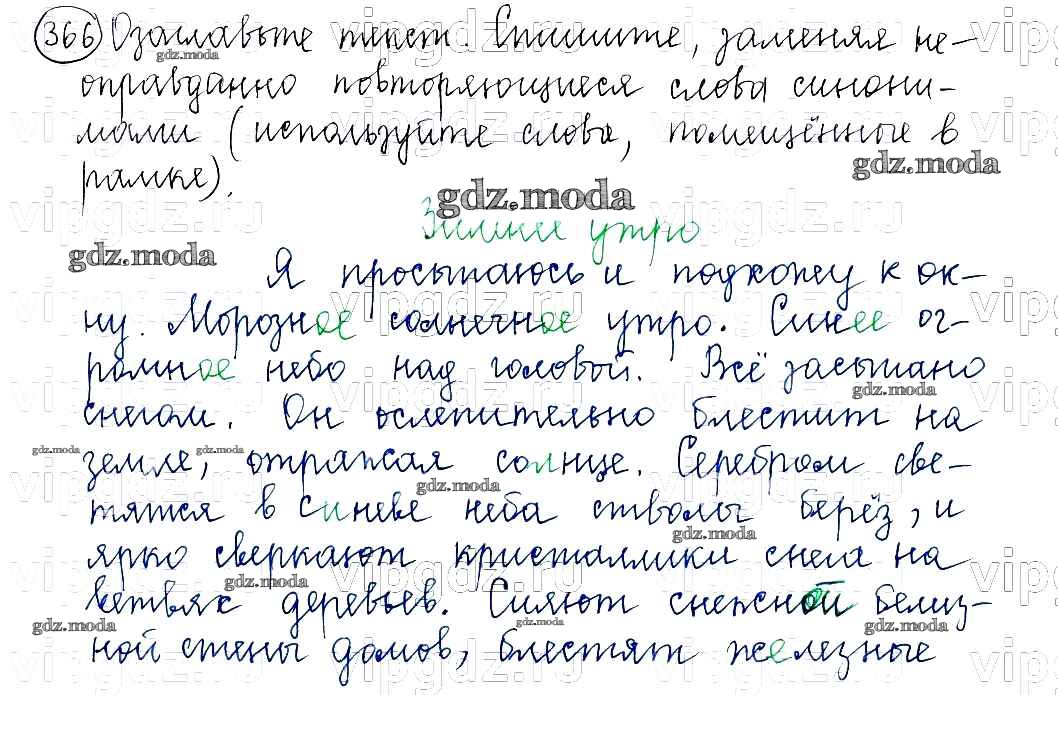 366 Озаглавьте текст. Спишите, заменяя не-
оправданно повторяющиеся слова синони-
мами (используйте слова, помещённые в
рамке).
Зимнее утро
Я просыпаюсь и подхожу к ок-
ну. Морозное солнечное утро. Синее ог-
ромное небо над головой. Всё засыпано
снегом. Он ослепительно блестит на
земле, отражая солнце. Серебром све-
тятся в синеве неба стволы берёз, и
ярко сверкают кристаллики снега на
ветвях деревьев. Сияют снежной белиз-
ной стены домов, блестят железные
gdz.moda
vipgdz.ru